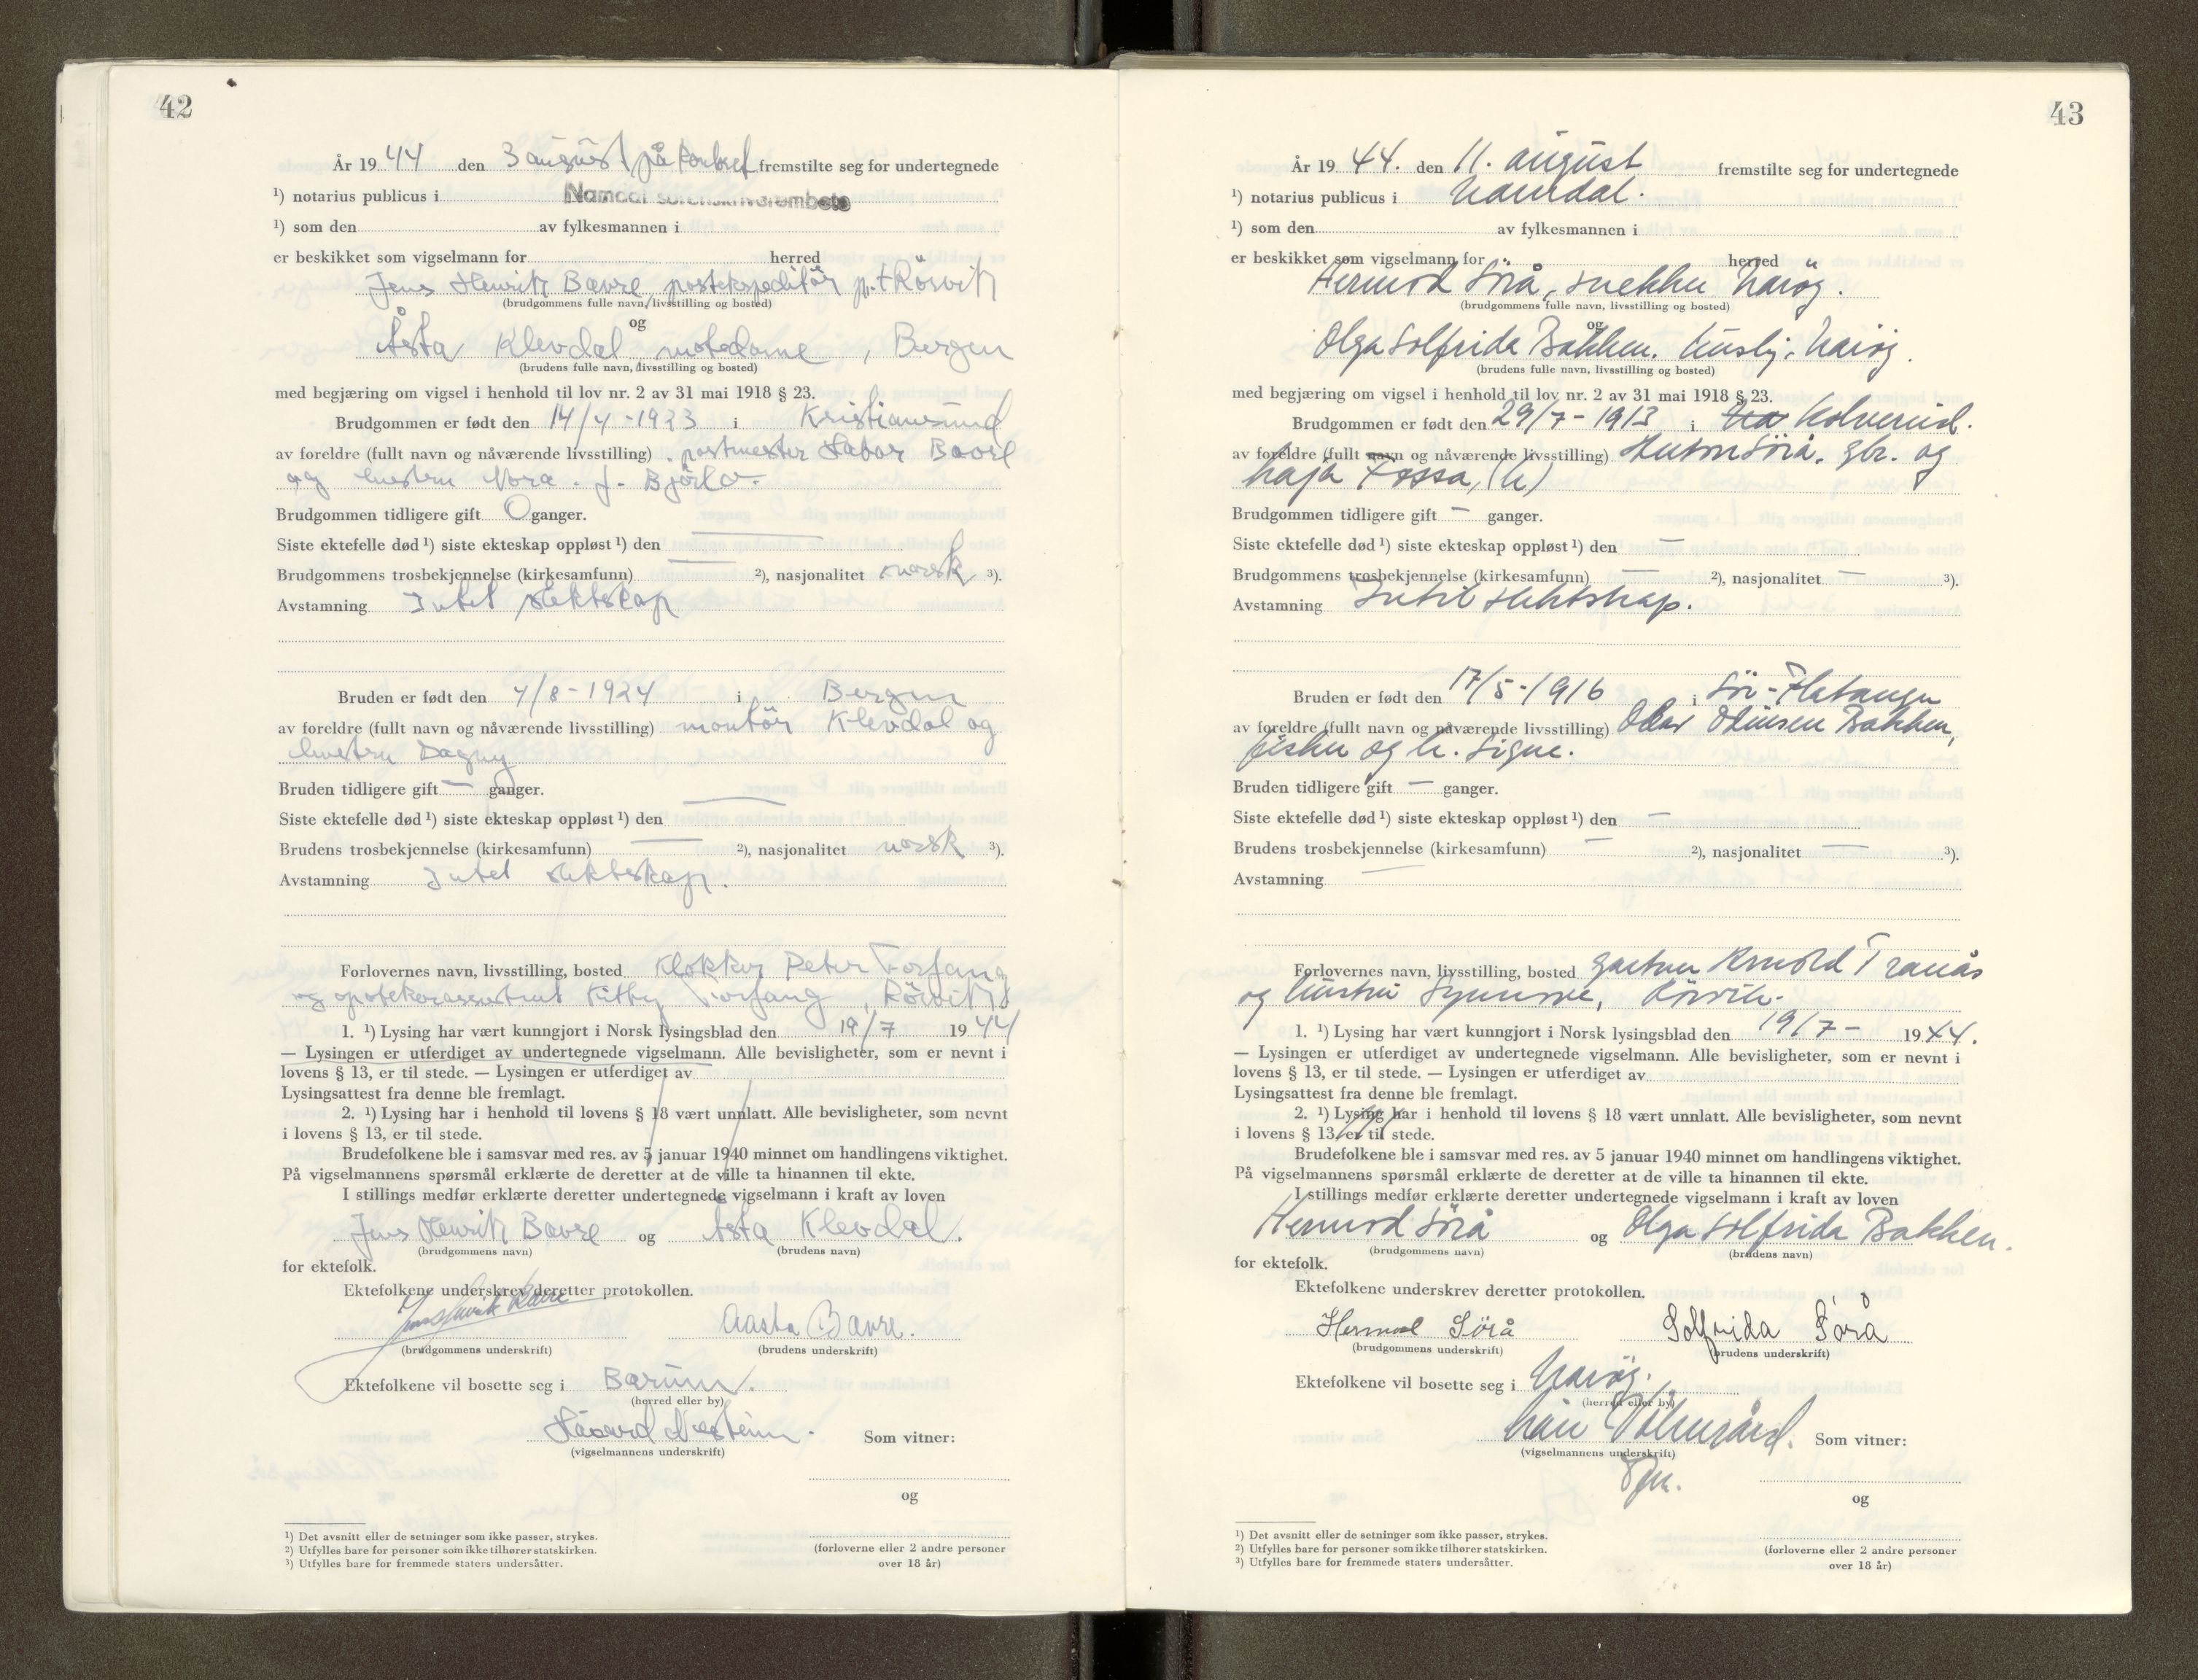 42
År 19 44 den 3 august på kontoret fremstilte seg for undertegnede
¹) notarius publicus i Namdal sorenskriverembete
¹) som den av fylkesmannen i
er beskikket som vigselmann for herred
Jens Henrik Bavre postekspeditör p.t Rörvik
(brudgommens fulle navn, livsstilling og bosted)
og
Åsta Klevdal motedame, Bergen
(brudens fulle navn, livsstilling og bosted)
med begjæring om vigsel i henhold til lov nr. 2 av 31 mai 1918 § 23.
Brudgommen er født den 14/4-1923 i Kristiansund
av foreldre (fullt navn og nåværende livsstilling) postmester Bavre
og hustru Nora f.
Brudgommen tidligere gift 0 ganger.
Siste ektefelle død ¹) siste ekteskap oppløst ¹) den —
Brudgommens trosbekjennelse (kirkesamfunn) — ²), nasjonalitet norsk ³).
Avstamning Intet slektskap
Bruden er født den 4/8-1924 i Bergen
av foreldre (fullt navn og nåværende livsstilling) montör Klevdal og
hustru Dagny
Bruden tidligere gift — ganger.
Siste ektefelle død ¹) siste ekteskap oppløst ¹) den —
Brudens trosbekjennelse (kirkesamfunn) — ²), nasjonalitet norsk ³).
Avstamning Intet slektskap.
Forlovernes navn, livsstilling, bosted Klokker Peter Forfang
og Kitty Forfang, Rörvik
1. ¹) Lysing har vært kunngjort i Norsk lysingsblad den 19/7 1944
— Lysingen er utferdiget av undertegnede vigselmann. Alle bevisligheter, som er nevnt i
lovens § 13, er til stede. — Lysingen er utferdiget av
Lysingsattest fra denne ble fremlagt.
2. ¹) Lysing har i henhold til lovens § 18 vært unnlatt. Alle bevisligheter, som nevnt
i lovens § 13, er til stede.
Brudefolkene ble i samsvar med res. av 5 januar 1940 minnet om handlingens viktighet.
På vigselmannens spørsmål erklærte de deretter at de ville ta hinannen til ekte.
I stillings medfør erklærte deretter undertegnede vigselmann i kraft av loven
Jens Henrik Bavre og Åsta Klevdal.
(brudgommens navn) (brudens navn)
for ektefolk.
Ektefolkene underskrev deretter protokollen.
Jens Henrik Bavre Aasta Bavre.
(brudgommens underskrift) (brudens underskrift)
Ektefolkene vil bosette seg i Bærum.
(herred eller by)
Som vitner:
(vigselmannens underskrift)
og
¹) Det avsnitt eller de setninger som ikke passer, strykes.
²) Utfylles bare for personer som ikke tilhører statskirken.
³) Utfylles bare for fremmede staters undersåtter.
(forloverne eller 2 andre personer
over 18 år)
43
År 19 44. den 11. august fremstilte seg for undertegnede
¹) notarius publicus i Namdal.
¹) som den av fylkesmannen i
er beskikket som vigselmann for herred
Hermod Sörå, snekker Nærøy.
(brudgommens fulle navn, livsstilling og bosted)
og
Olga Solfrida Bakken. Nærøy.
(brudens fulle navn, livsstilling og bosted)
med begjæring om vigsel i henhold til lov nr. 2 av 31 mai 1918 § 23.
Brudgommen er født den 29/7-1913 i Kolvereid.
av foreldre (fullt navn og nåværende livsstilling) Sörå, gbr. og
Fossa, (h)
Brudgommen tidligere gift — ganger.
Siste ektefelle død ¹) siste ekteskap oppløst ¹) den —
Brudgommens trosbekjennelse (kirkesamfunn) — ²), nasjonalitet — ³).
Avstamning Intet slektskap.
Bruden er født den 17/5-1916 i Sör-Flatanger
av foreldre (fullt navn og nåværende livsstilling) Bakken,
fisker og h. Signe.
Bruden tidligere gift — ganger.
Siste ektefelle død ¹) siste ekteskap oppløst ¹) den —
Brudens trosbekjennelse (kirkesamfunn) — ²), nasjonalitet — ³).
Avstamning —
Forlovernes navn, livsstilling, bosted gartner Arnold Tranås
og hustru Synnøve, Rörvik.
1. ¹) Lysing har vært kunngjort i Norsk lysingsblad den 19/7- 1944.
— Lysingen er utferdiget av undertegnede vigselmann. Alle bevisligheter, som er nevnt i
lovens § 13, er til stede. — Lysingen er utferdiget av
Lysingsattest fra denne ble fremlagt.
2. ¹) Lysing har i henhold til lovens § 18 vært unnlatt. Alle bevisligheter, som nevnt
i lovens § 13, er til stede.
Brudefolkene ble i samsvar med res. av 5 januar 1940 minnet om handlingens viktighet.
På vigselmannens spørsmål erklærte de deretter at de ville ta hinannen til ekte.
I stillings medfør erklærte deretter undertegnede vigselmann i kraft av loven
Hermod Sörå og Olga Solfrida Bakken.
(brudgommens navn) (brudens navn)
for ektefolk.
Ektefolkene underskrev deretter protokollen.
Hermod Sörå Solfrida Sörå
(brudgommens underskrift) (brudens underskrift)
Ektefolkene vil bosette seg i Nærøy.
(herred eller by)
Som vitner:
(vigselmannens underskrift)
og
¹) Det avsnitt eller de setninger som ikke passer, strykes.
²) Utfylles bare for personer som ikke tilhører statskirken.
³) Utfylles bare for fremmede staters undersåtter.
(forloverne eller 2 andre personer
over 18 år)